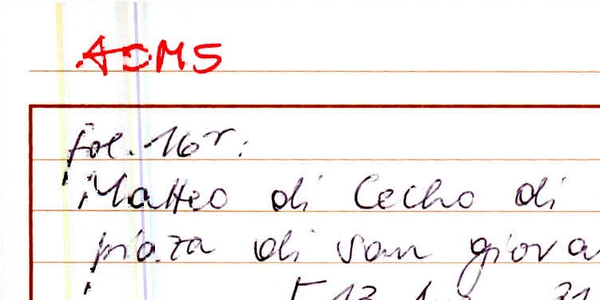 AOMS
fol. 16r:
Matteo di Cecho di
piaza di san giova